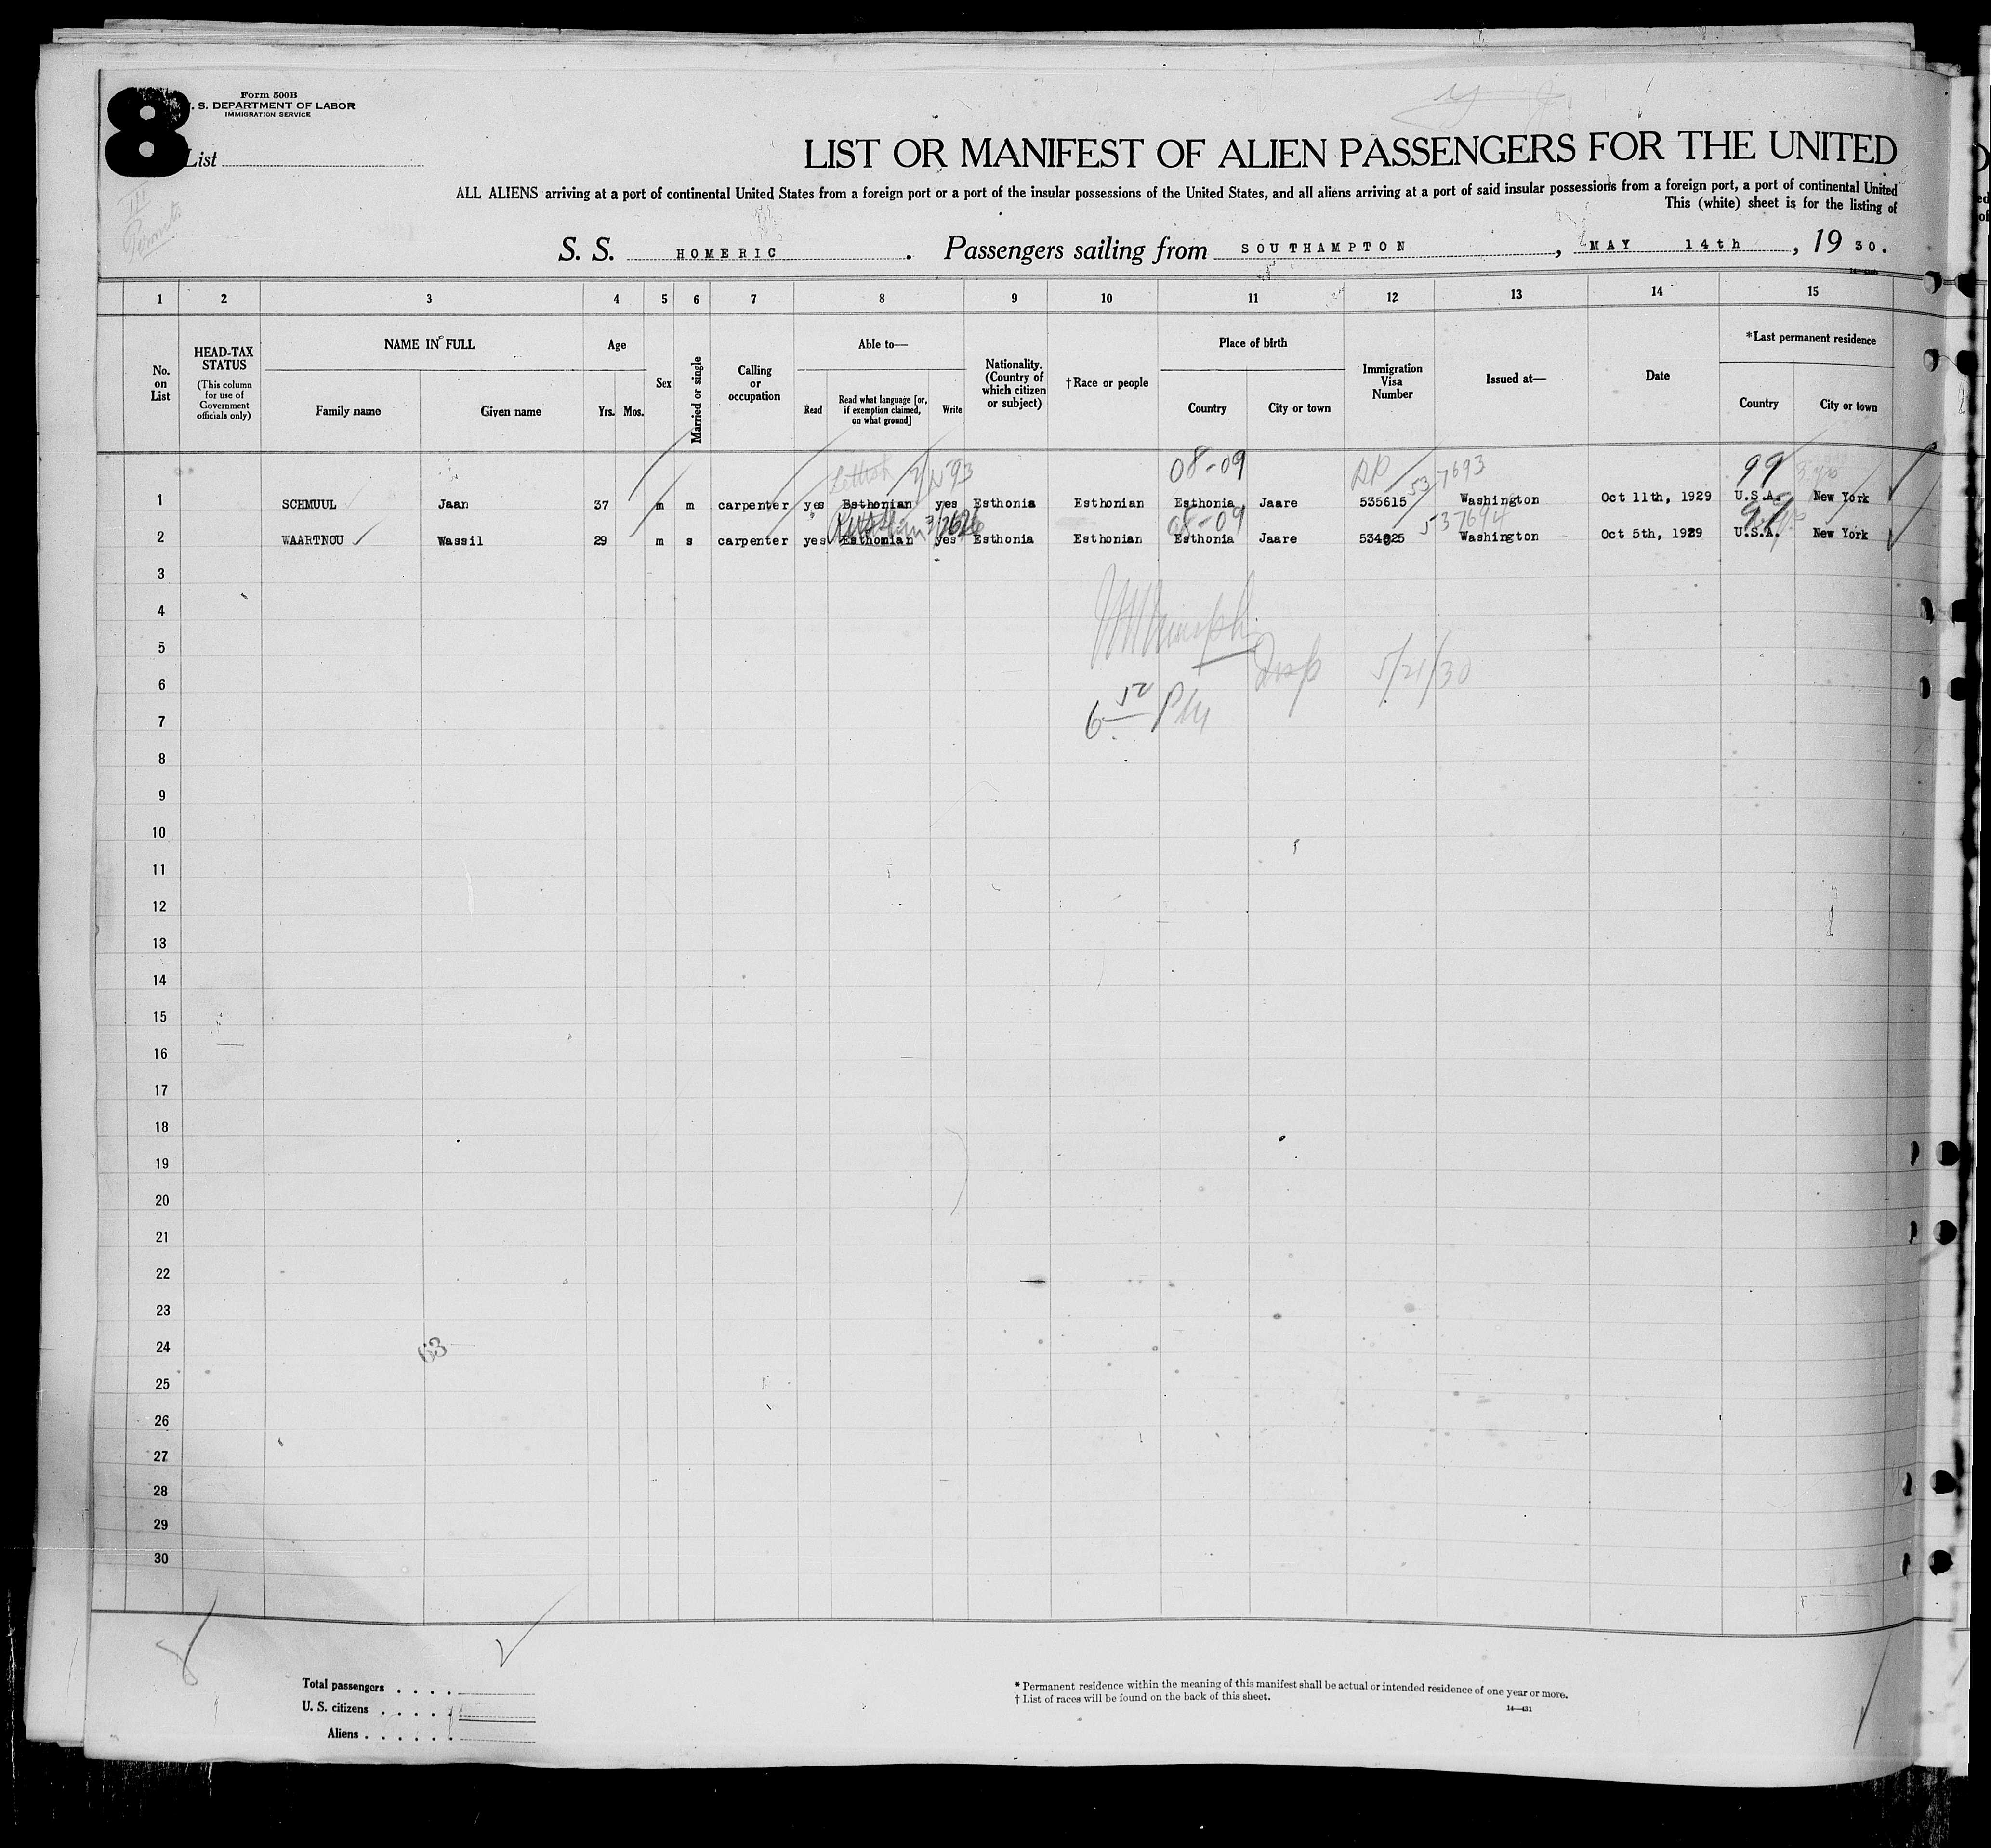 8
Form 500B
U. S. DEPARTMENT OF LABOR
IMMIGRATION SERVICE
List
III
Permits
LIST OR MANIFEST OF ALIEN PASSENGERS FOR THE UNITED
ALL ALIENS arriving at a port of continental United States from a foreign port or a port of the insular possessions of the United States, and all aliens arriving at a port of said insular possessions from a foreign port, a port of continental United
This (white) sheet is for the listing of
S. S. HOMERIC. Passengers sailing from SOUTHAMPTON, MAY 14th, 1930.
1 2 3 4 5 6 7 8 9 10 11 12 13 14 15
No. on List
HEAD-TAX STATUS (This column for use of Government officials only)
NAME IN FULL
Family name Given name
Age
Yrs. Mos.
Sex
Married or single
Calling or occupation
Able to—
Read
Read what language [or, if exemption claimed, on what ground]
Write
Nationality. (Country of which citizen or subject)
†Race or people
Place of birth
Country City or town
Immigration Visa Number
Issued at—
Date
*Last permanent residence
Country City or town
Lettish 08-09 RP 537693 99
1 SCHMUUL Jaan 37 m m carpenter yes Esthonian yes Esthonia Esthonian Esthonia Jaare 535615 Washington Oct 11th, 1929 U.S.A. New York
08-09 537694 99
2 WAARTNOU Wassil 29 m s carpenter yes Esthonian yes Esthonia Esthonian Esthonia Jaare 534925 Washington Oct 5th, 1929 U.S.A. New York
3
4
5
Insp 5/21/30
6
6 50 PM
7
8
9
10
11
12
13
14
15
16
17
18
19
20
21
22
23
24
63
25
26
27
28
29
30
Total passengers . . . .
U. S. citizens . . . . .
Aliens . . . . . .
* Permanent residence within the meaning of this manifest shall be actual or intended residence of one year or more.
† List of races will be found on the back of this sheet.